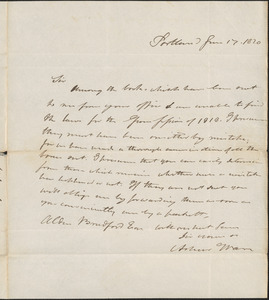 Portland June 17. 1820
Sir
Among the books which have been sent
to me from your office I am unable to find
the laws for the June session of 1810. I presume
they must have been omitted by mistake,
for we have made a thorough examination of all the
boxes sent. I presume that you can easily determine
from those which remain whether such a mistake
has happened or not. If they are not sent you
will oblige me by forwarding them as soon as
you conveniently can by a packet.
Alden Bradford Esq with respect
I am
Ashur Ware